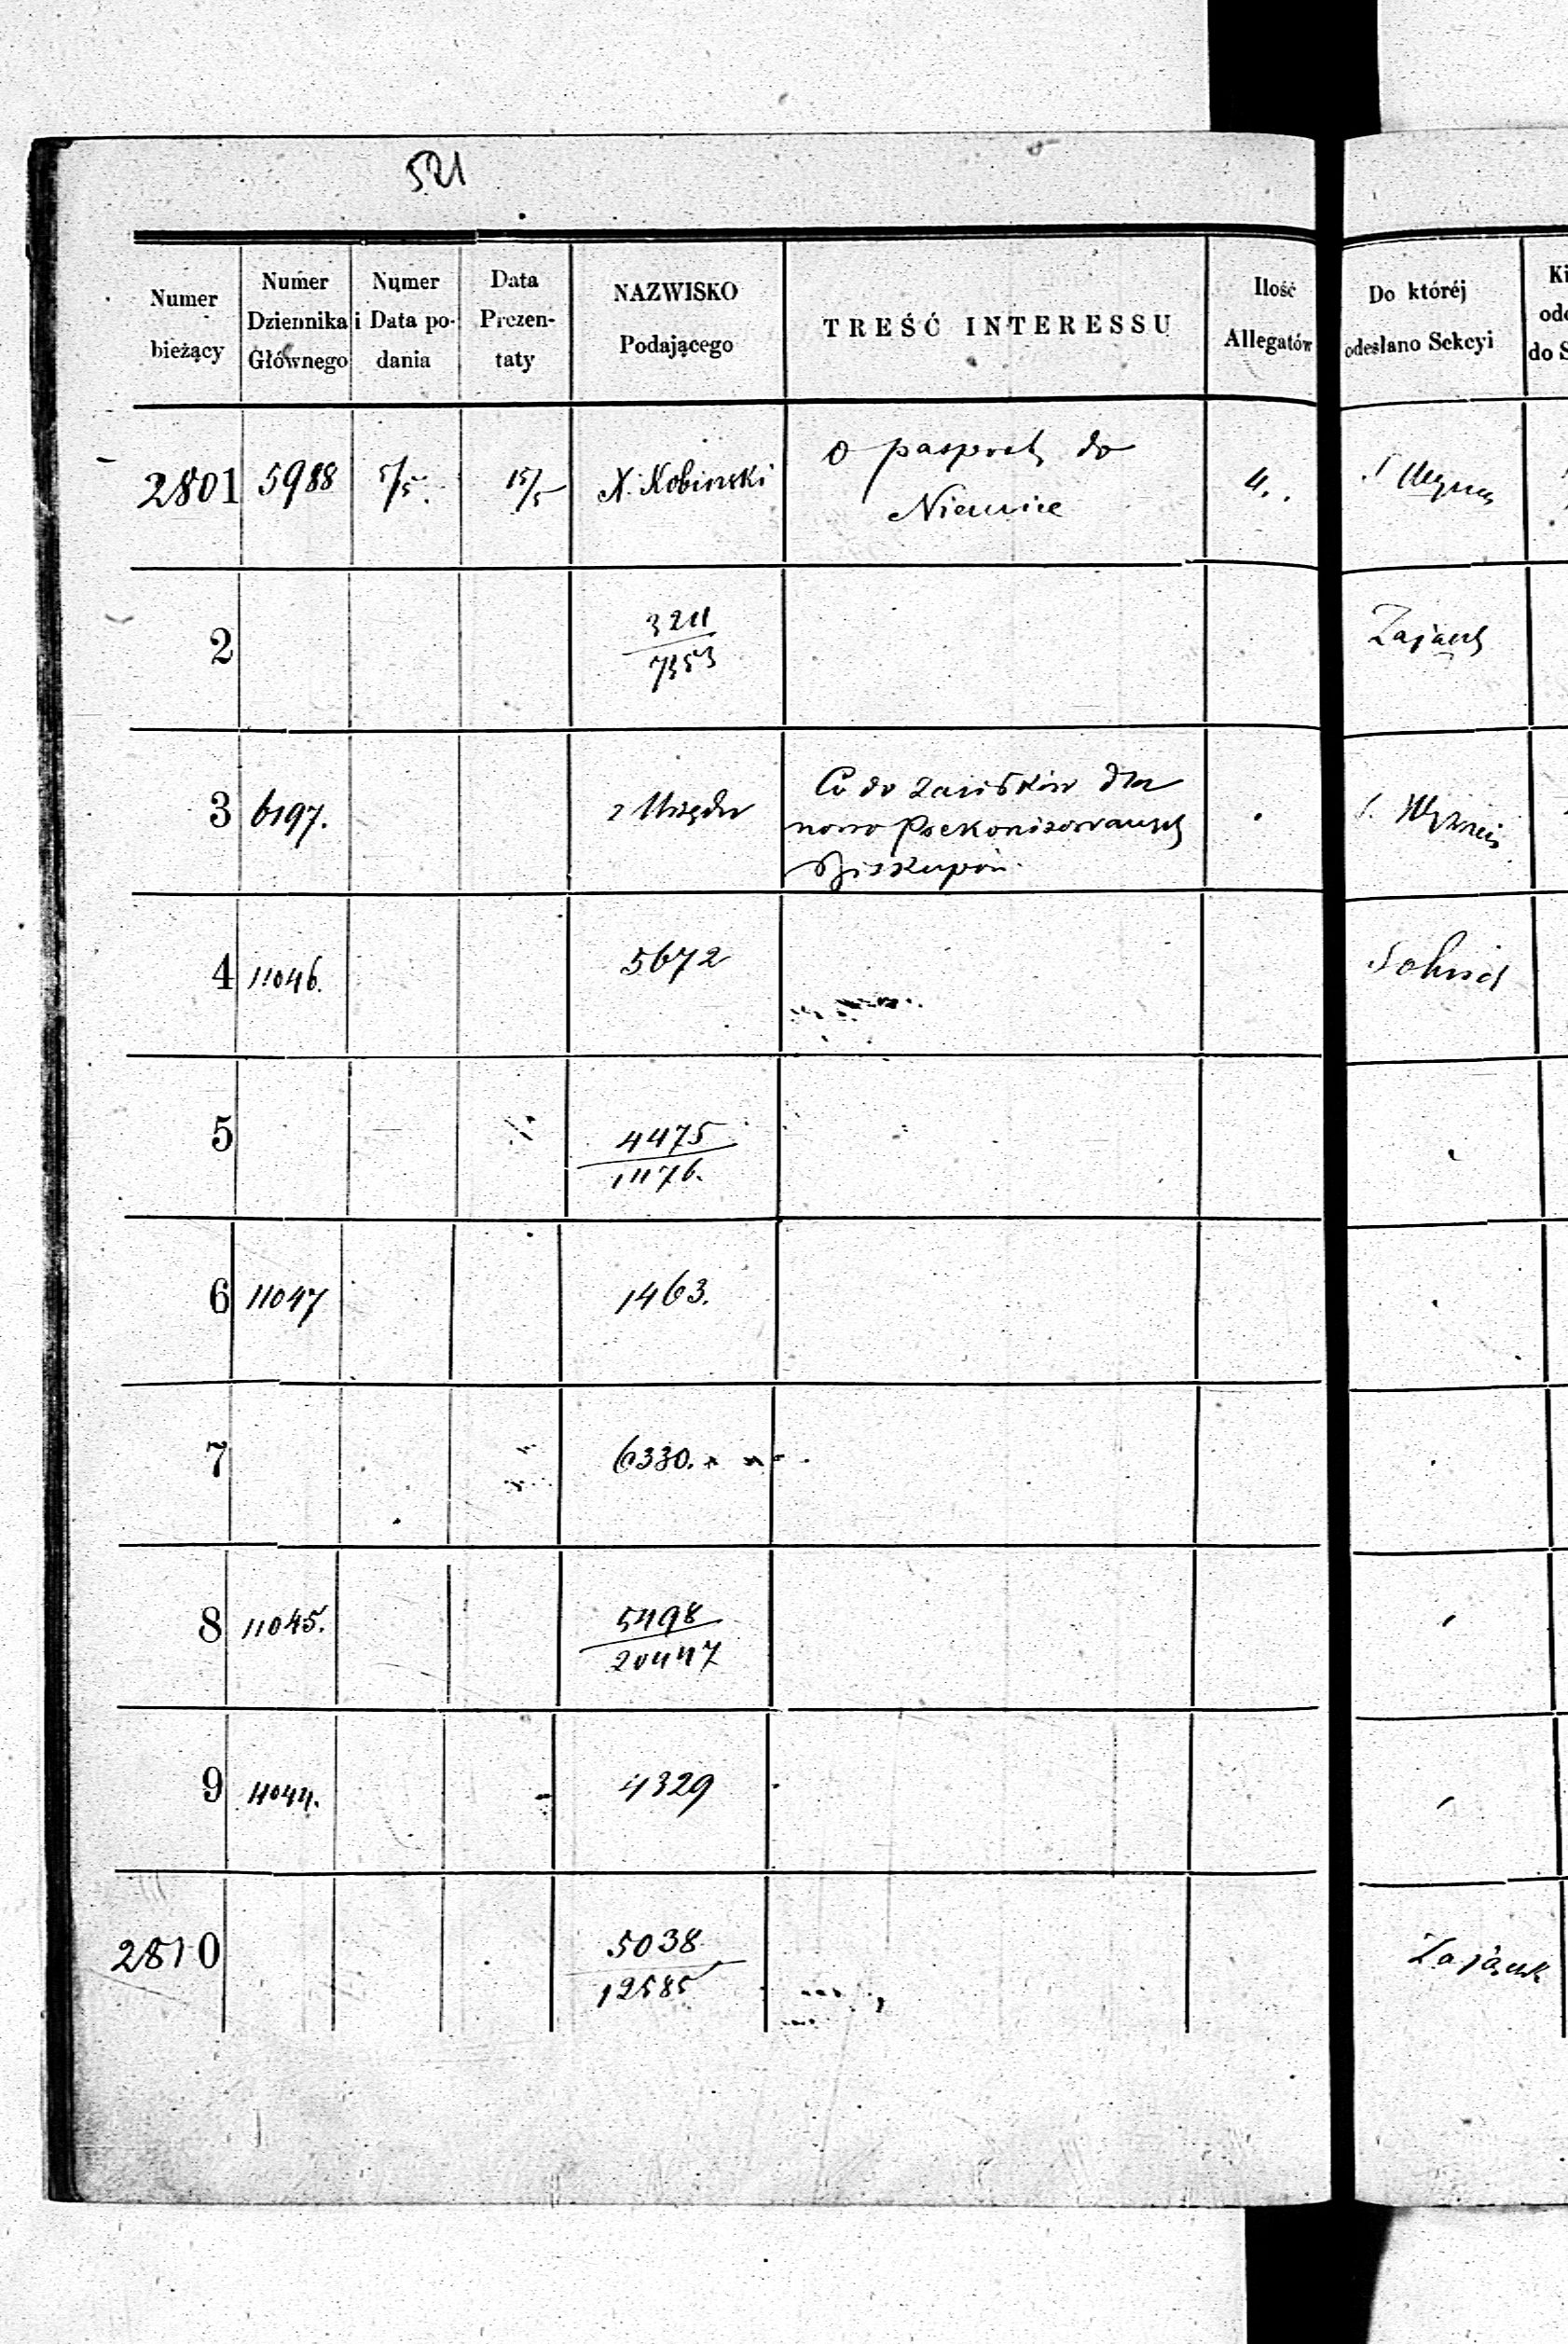 521
Numer bieżący | Numer Dziennika Głównego | Numer i Data podania | Data Prezentaty | NAZWISKO Podającego | TREŚĆ INTERESSU | Ilość Allegatów | Do któréj odesłano Sekcyi
2801 | 5988 | 5/5. | 15/5 | X. Kobinski | O pasport do | 4.
Niemiec
2 | 3211/7353 | Zając
3 | 6197. | z Urzędu | Co do zasiłków dla
nowo Prekonizowanych
Biskupów
4 | 11046. | 5672
5 | 4475/11176.
6 | 11047 | 1463.
7 | 6330.
8 | 11045. | 5498/20447
9 | 11044. | 4329
2810 | 5038/12585